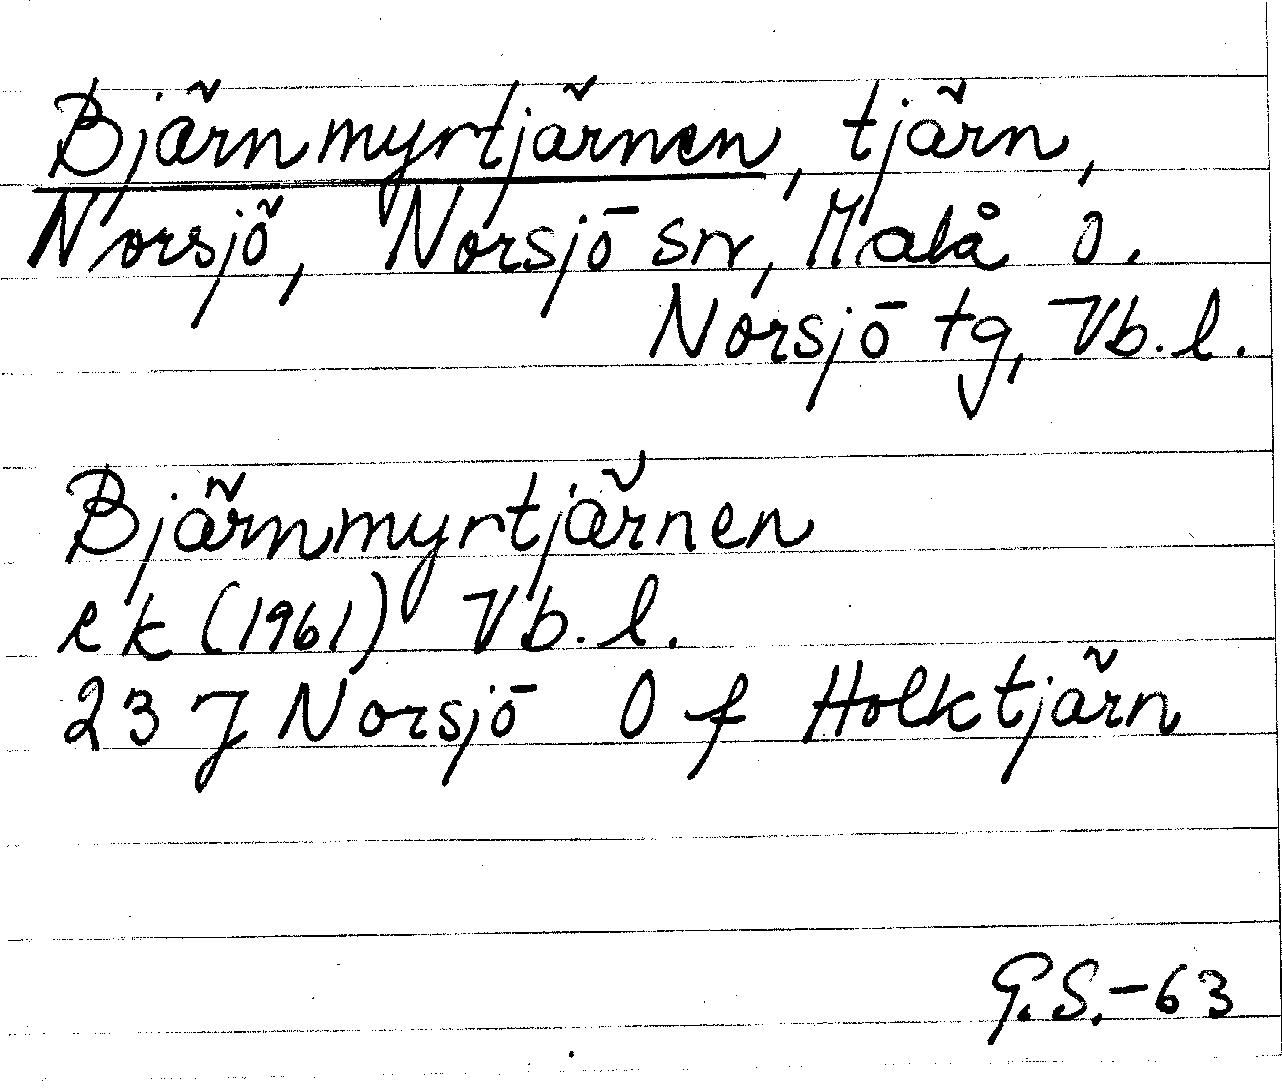 Bjärnmyrtjärnen, tjärn,
Norsjö, Norsjö sn, Malå o.
Norsjö tg, Vb.l.
Bjärnmyrtjärnen
ek (1961) Vb.l.
23 J Norsjö O f Holktjärn
G.S.-63